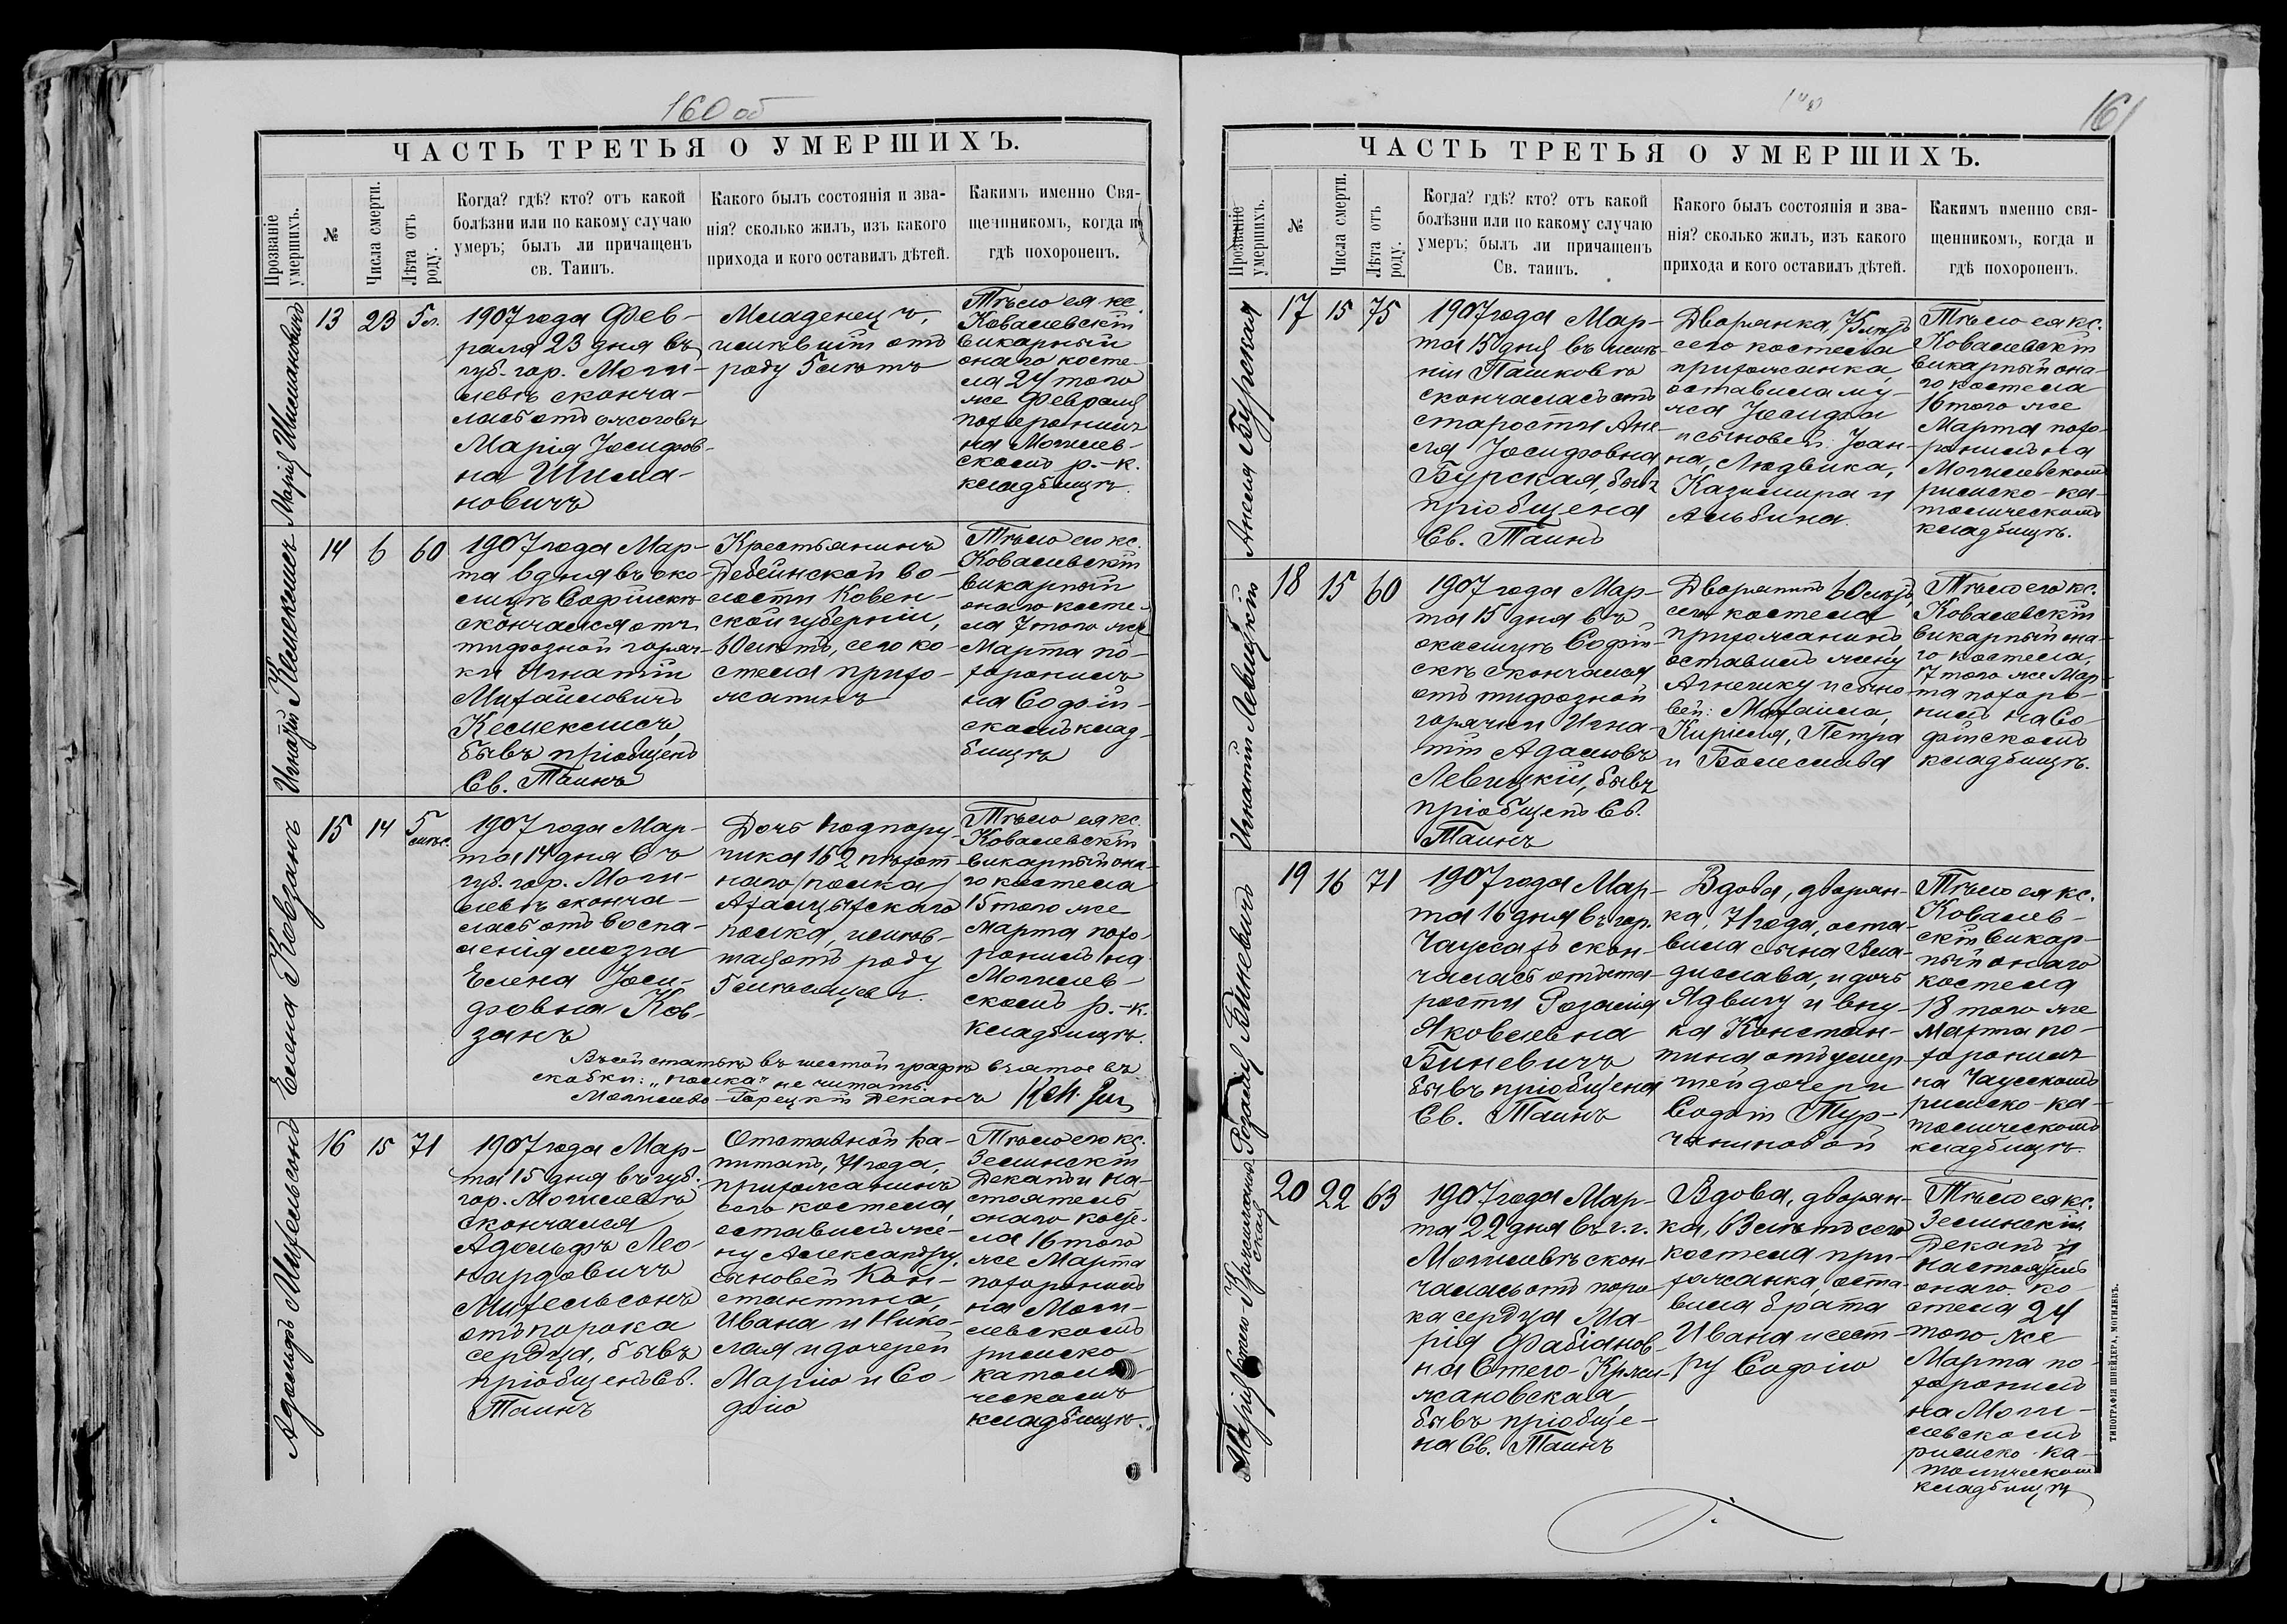 160 об
ЧАСТЬ ТРЕТЬЯ О УМЕРШИХЪ.
Прозваніе умершихъ.
№
Числа смерти.
Лѣта отъ роду.
Когда? гдѣ? кто? отъ какой
болѣзни или по какому случаю
умеръ; былъ ли причащенъ
св. Таинъ.
Какого былъ состоянія и зва-
нія? сколько жилъ, изъ какого
прихода и кого оставилъ дѣтей.
Какимъ именно Свя-
щенникомъ, когда и
гдѣ похороненъ.
Марія Шимановичъ
13
23
5 л.
1907 года Фев-
раля 23 дня въ
губ. гор. Моги-
левѣ сконча-
лась отъ ожоговъ
Марія Іосифов-
на Шима-
новичъ
Младенецъ,
имѣвшій отъ
роду 5 лѣтъ
Тѣло ея кс.
Ковалевскій
викарный
онаго косте-
ла 24 того
же Февраля
похоронилъ
на Могилев-
скомъ р.-к.
кладбищѣ.
Игнатій Кемекемсъ
14
6
60
1907 года Мар-
та 6 дня въ око-
лицѣ Софійскѣ
скончался отъ
тифозной горяч-
ки Игнатій
Михайловичъ
бывъ пріобщенъ
Св. Таинъ
Крестьянинъ
Дебейнской во-
лости Ковен-
ской губерніи,
60 лѣтъ, сего ко-
стела прихо-
жанинъ
Тѣло его кс.
Ковалевскій
викарный
онаго косте-
ла 7 того же
Марта по-
хоронилъ
на Софій-
скомъ клад-
бищѣ
Елена Ковзанъ
15
14
5 мѣс.
1907 года Мар-
та 14 дня въ
губ. гор. Моги-
левѣ сконча-
лась отъ воспа-
ленія мозга
Елена Іоси-
фовна Ков-
занъ
Дочь подпору-
чика 162 пѣхот-
наго /полка/
Ахалцыхскаго
полка, имѣв-
шая отъ роду
5 мѣсяцевъ.
Тѣло ея кс.
Ковалевскій
викарный она-
го костела
15 того же
Марта похо-
ронилъ на
Могилев-
скомъ р.-к.
кладбищѣ.
Въ сей статьѣ въ шестой графѣ взятое въ
скобки: „полка" не читать.
Могилево-Горецкій Деканъ
Адольфъ Михельсонъ
16
15
71
1907 года Мар-
та 15 дня въ губ.
гор. Могилевѣ
скончался
Адольфъ Лео-
нардовичъ
Михельсонъ
отъ порока
сердца, бывъ
пріобщенъ Св.
Таинъ
Отставной Ка-
питанъ, 71 года,
прихожанинъ
сего костела,
оставилъ же-
ну Александру,
сыновей Кон-
стантина,
Ивана и Нико-
лая и дочерей
Марію и Со-
фію
Тѣло его кс.
Зелинскій
Деканъ и На-
стоятель
онаго косте-
ла 16 того
же Марта
похоронилъ
на Моги-
левскомъ
римско-
католи-
ческомъ
кладбищѣ.
161
ЧАСТЬ ТРЕТЬЯ О УМЕРШИХЪ.
Прозваніе умершихъ.
№
Числа смерти.
Лѣта отъ роду.
Когда? гдѣ? кто? отъ какой
болѣзни или по какому случаю
умеръ; былъ ли причащенъ
Св. таинъ.
Какого былъ состоянія и зва-
нія? сколько жилъ, изъ какого
прихода и кого оставилъ дѣтей.
Какимъ именно свя-
щенникомъ, когда и
гдѣ похороненъ.
Анеля Бурская
17
15
75
1907 года Мар-
та 15 дня въ имѣ-
ніи Пашковѣ
скончалась отъ
старости Ане-
ля Іосифовна
Бурская, бывъ
пріобщена
Св. Таинъ
Дворянка, 75 лѣтъ
сего костела
прихожанка,
оставила му-
жа Іосифа
и сыновей: Іоан-
на, Людвика,
Казимира и
Альбина.
Тѣло ея кс.
Ковалевскій
викарный она-
го костела
16 того же
Марта похо-
ронилъ на
Могилевскомъ
римско-ка-
толическомъ
кладбищѣ.
Игнатій Левицкій
18
15
60
1907 года Мар-
та 15 дня въ
околицѣ Софій-
скѣ скончался
отъ тифозной
горячки Игна-
тій Адамовъ
Левицкій, бывъ
пріобщенъ Св.
Таинъ
Дворянинъ 60 лѣтъ,
сего костела
прихожанинъ,
оставилъ жену
Агнешку и сыно-
вей: Михаила,
Кирилла, Петра
и Болеслава
Тѣло его кс.
Ковалевскій
викарный она-
го костела,
17 того же Мар-
та похоро-
нилъ на Со-
фійскомъ
кладбищѣ.
Розалія Биневичъ
19
16
71
1907 года Мар-
та 16 дня въ гор.
Чаусахъ скон-
чалась отъ ста-
рости Розалія
Яковлевна
Биневичъ
бывъ пріобщена
Св. Таинъ
Вдова, дворян-
ка, 71 года, оста-
вила сына Вла-
дислава, и дочь
Ядвигу и вну-
ка Констан-
тина отъ умер-
шей дочери
Софіи Тур-
чаниновой
Тѣло ея кс.
Ковалев-
скій викар-
ный онаго
костела
18 того же
Марта по-
хоронилъ
на Чаусскомъ
римско-ка-
толическомъ
кладбищѣ.
Марія Стего-Кржижановская
20
22
63
1907 года Мар-
та 22 дня въ г. г.
Могилевѣ скон-
чалась отъ поро-
ка сердца Ма-
рія Фабіанов-
на Стего-Кржи-
жановская,
бывъ пріобще-
на Св. Таинъ
Вдова, дворян-
ка, 63 лѣтъ сего
костела при-
хожанка, оста-
вила брата
Ивана и сест-
ру Софію
Тѣло ея кс.
Зелинскій
Деканъ и
настоятель
онаго ко-
стела 24
того же
Марта по-
хоронилъ
на Моги-
левскомъ
римско-ка-
толическомъ
кладбищѣ
ТИПОГРАФІЯ ШНЕЙДЕРА, МОГИЛЕВЪ.